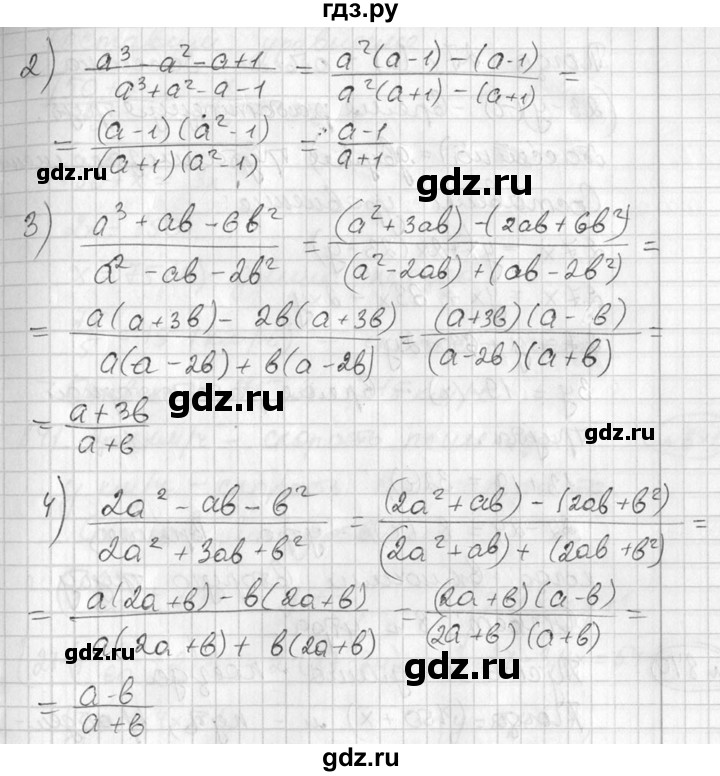 гдз.ру
2) (a³ - a² - a + 1)/(a³ + a² - a - 1) = (a²(a-1) - (a-1))/(a²(a+1) - (a+1)) =
= ((a-1)(a²-1))/((a+1)(a²-1)) = (a-1)/(a+1)
gdz.ru
gdz.ru
3) (a³ + ab - 6b²)/(a² - ab - 2b²) = ((a² + 3ab) - (2ab + 6b²))/((a² - 2ab) + (ab - 2b²)) =
= (a(a+3b) - 2b(a+3b))/(a(a-2b) + b(a-2b)) = ((a+3b)(a-b))/((a-2b)(a+b)) =
gdz.ru
gdz.ru
= (a+3b)/(a+b)
4) (2a² - ab - b²)/(2a² + 3ab + b²) = ((2a² + ab) - (2ab + b²))/((2a² + ab) + (2ab + b²)) =
= (a(2a+b) - b(2a+b))/(a(2a+b) + b(2a+b)) = ((2a+b)(a-b))/((2a+b)(a+b)) =
gdz.ru
gdz.ru
= (a-b)/(a+b)
gdz.ru